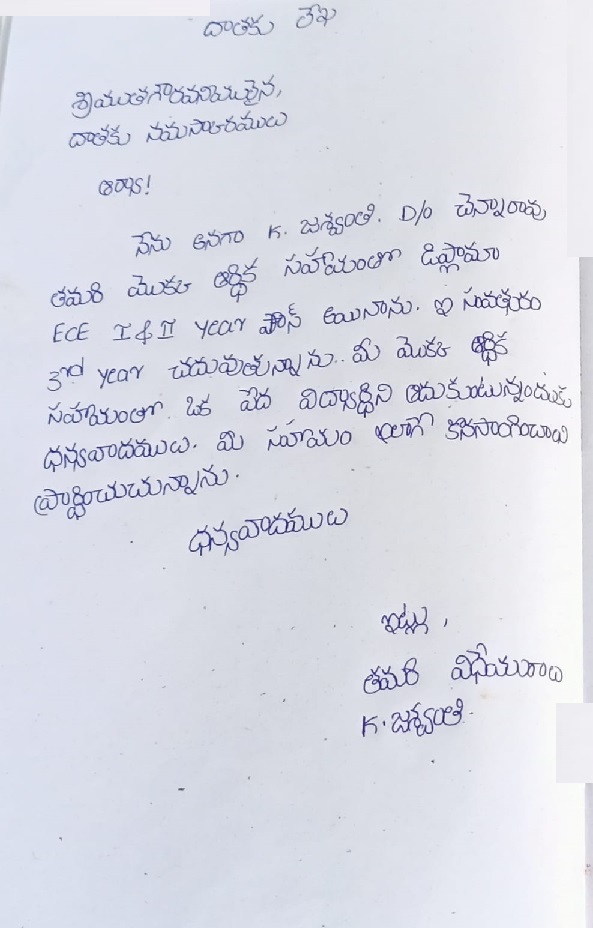 దాతకు లేఖ
శ్రీయుతగౌరవనియులైన,
దాతకు నమస్కారములు
ఆర్యా!
నేను అనగా K. జశ్వంతి. D/o చెన్నారావు
తమరి యొకక ఆర్థిక సహాయంతో డిప్లొమా
ECE I & II year పాస్ అయినాను. ఇ సంవత్సరం
3rd year చదువుతున్నాను.. మీ యొకక ఆర్థిక
సహాయంతో ఒక పేద విద్యార్థిని ఆదుకుంటున్నందుకు
ధన్యవాదములు. మి సహయం ఇలాగే కొనసాగించాలని
ప్రార్థించుచున్నాను.
ధన్యవాదములు
ఇట్లు,
తమరి విధేయురాలు
K. జశ్వంతి.